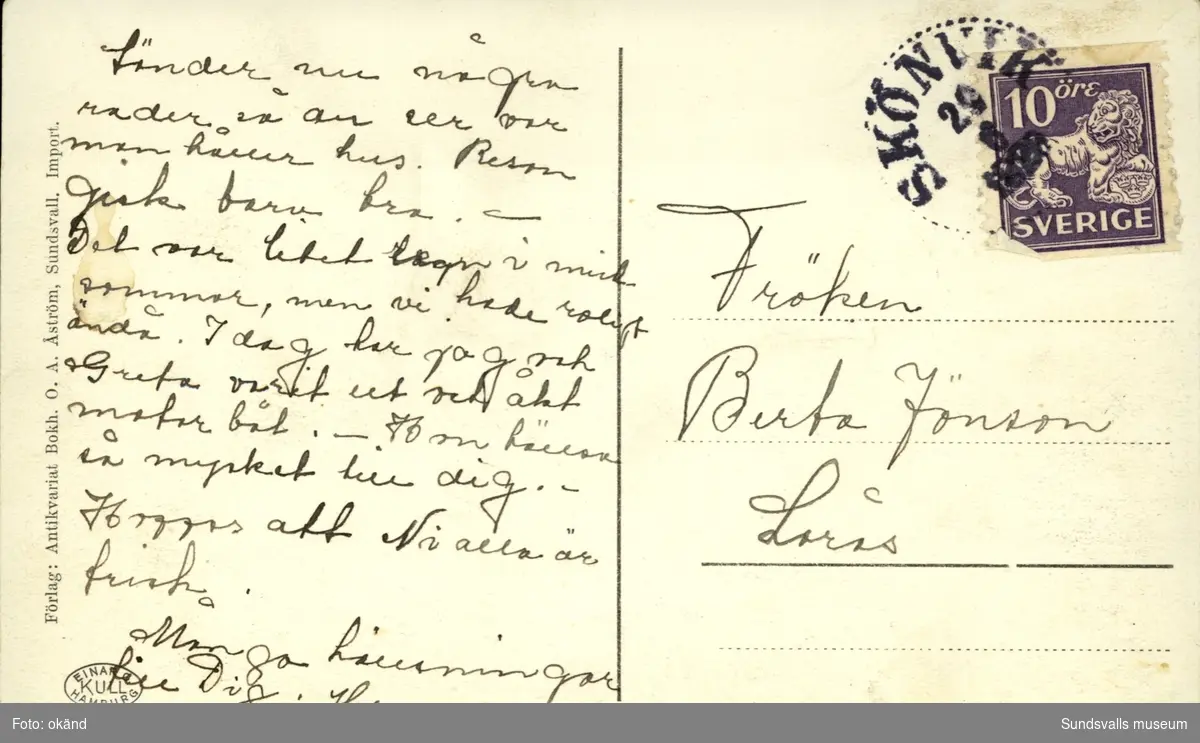 Sänder nu några
rader så du ser var
man håller hus. Reson
gick bara bra. —
Det var litet regn i mid
sommar, men vi hade roligt
ändå. I dag har jag och
Greta varit ut och åkt
motor båt. — Hon hälsa
så mycket till dig. —
Hoppas att Ni alla är
frisk.
Många hälsningar
till Dig.
Förlag: Antikvariat Bokh. O. A. Åström, Sundsvall. Import.
EINAR
KULL
HAMBURG
SKÖNVIK
10 öre
SVERIGE
Fröken
Berta Jönson
Sörås
Foto: okänd
Sundsvalls museum